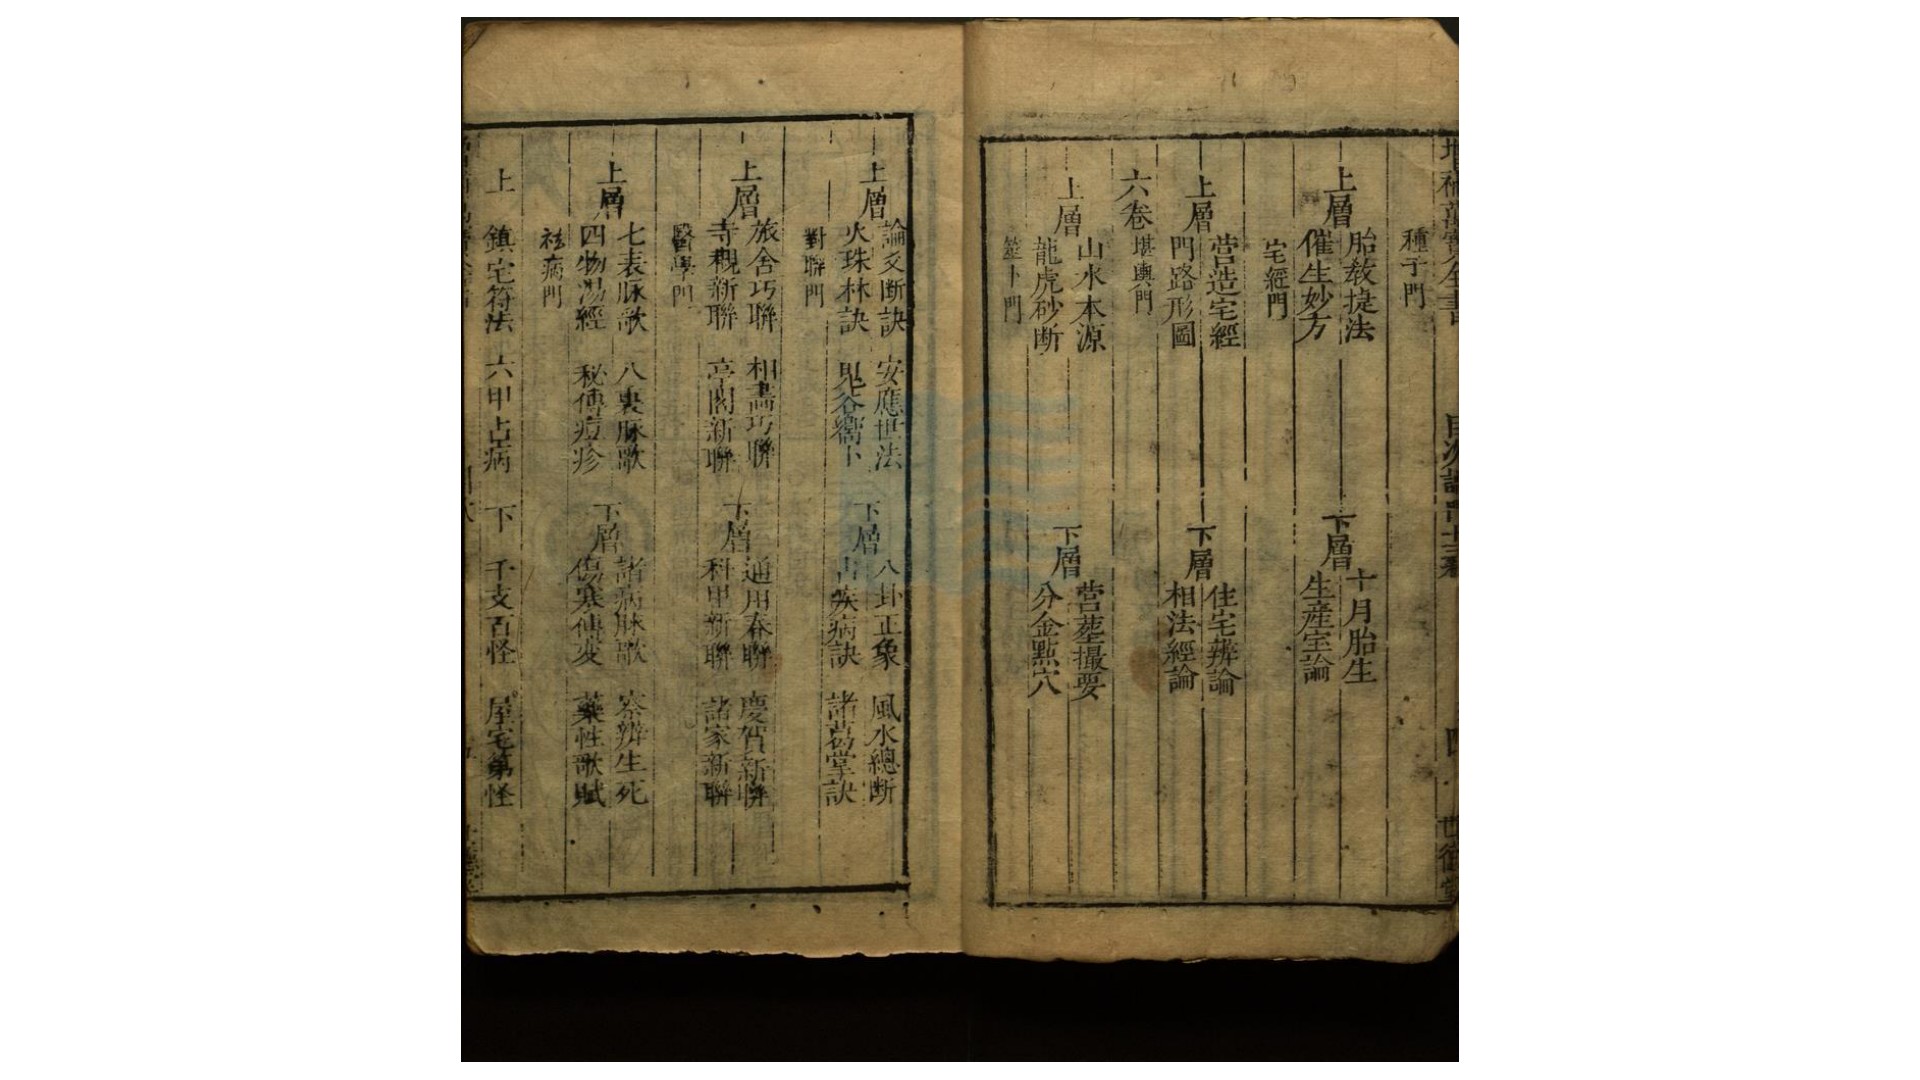 種子門
上層
胎教捷法
催生妙方
下層
十月胎生
生產宝論
宅經門
上層
营造宅經
門路形圖
下層
住宅辨論
相法經論
六卷
堪輿門
上層
山水本源
龍虎砂断
下層
营塟撮要
分金點穴
筮卜門
上層
論爻断訣 安應世法
火珠林訣 鬼谷響卜
下層
八卦正象 風水總断
占疾病訣 諸葛掌訣
對聯門
上層
旅舍巧聯 相畵巧聯
寺觀新聯 亭閣新聯
下層
通用春聯 慶賀新聯
科甲新聯 諸家新聯
醫學門
上層
七表脉歌 八裏脉歌
四物湯經 秘傳痘疹
下層
諸病脉歌 察辨生死
傷寒傳变 藥性歌賦
袪病門
上 鎮宅符法 六甲占病 下 干支百怪 屋宅第怪